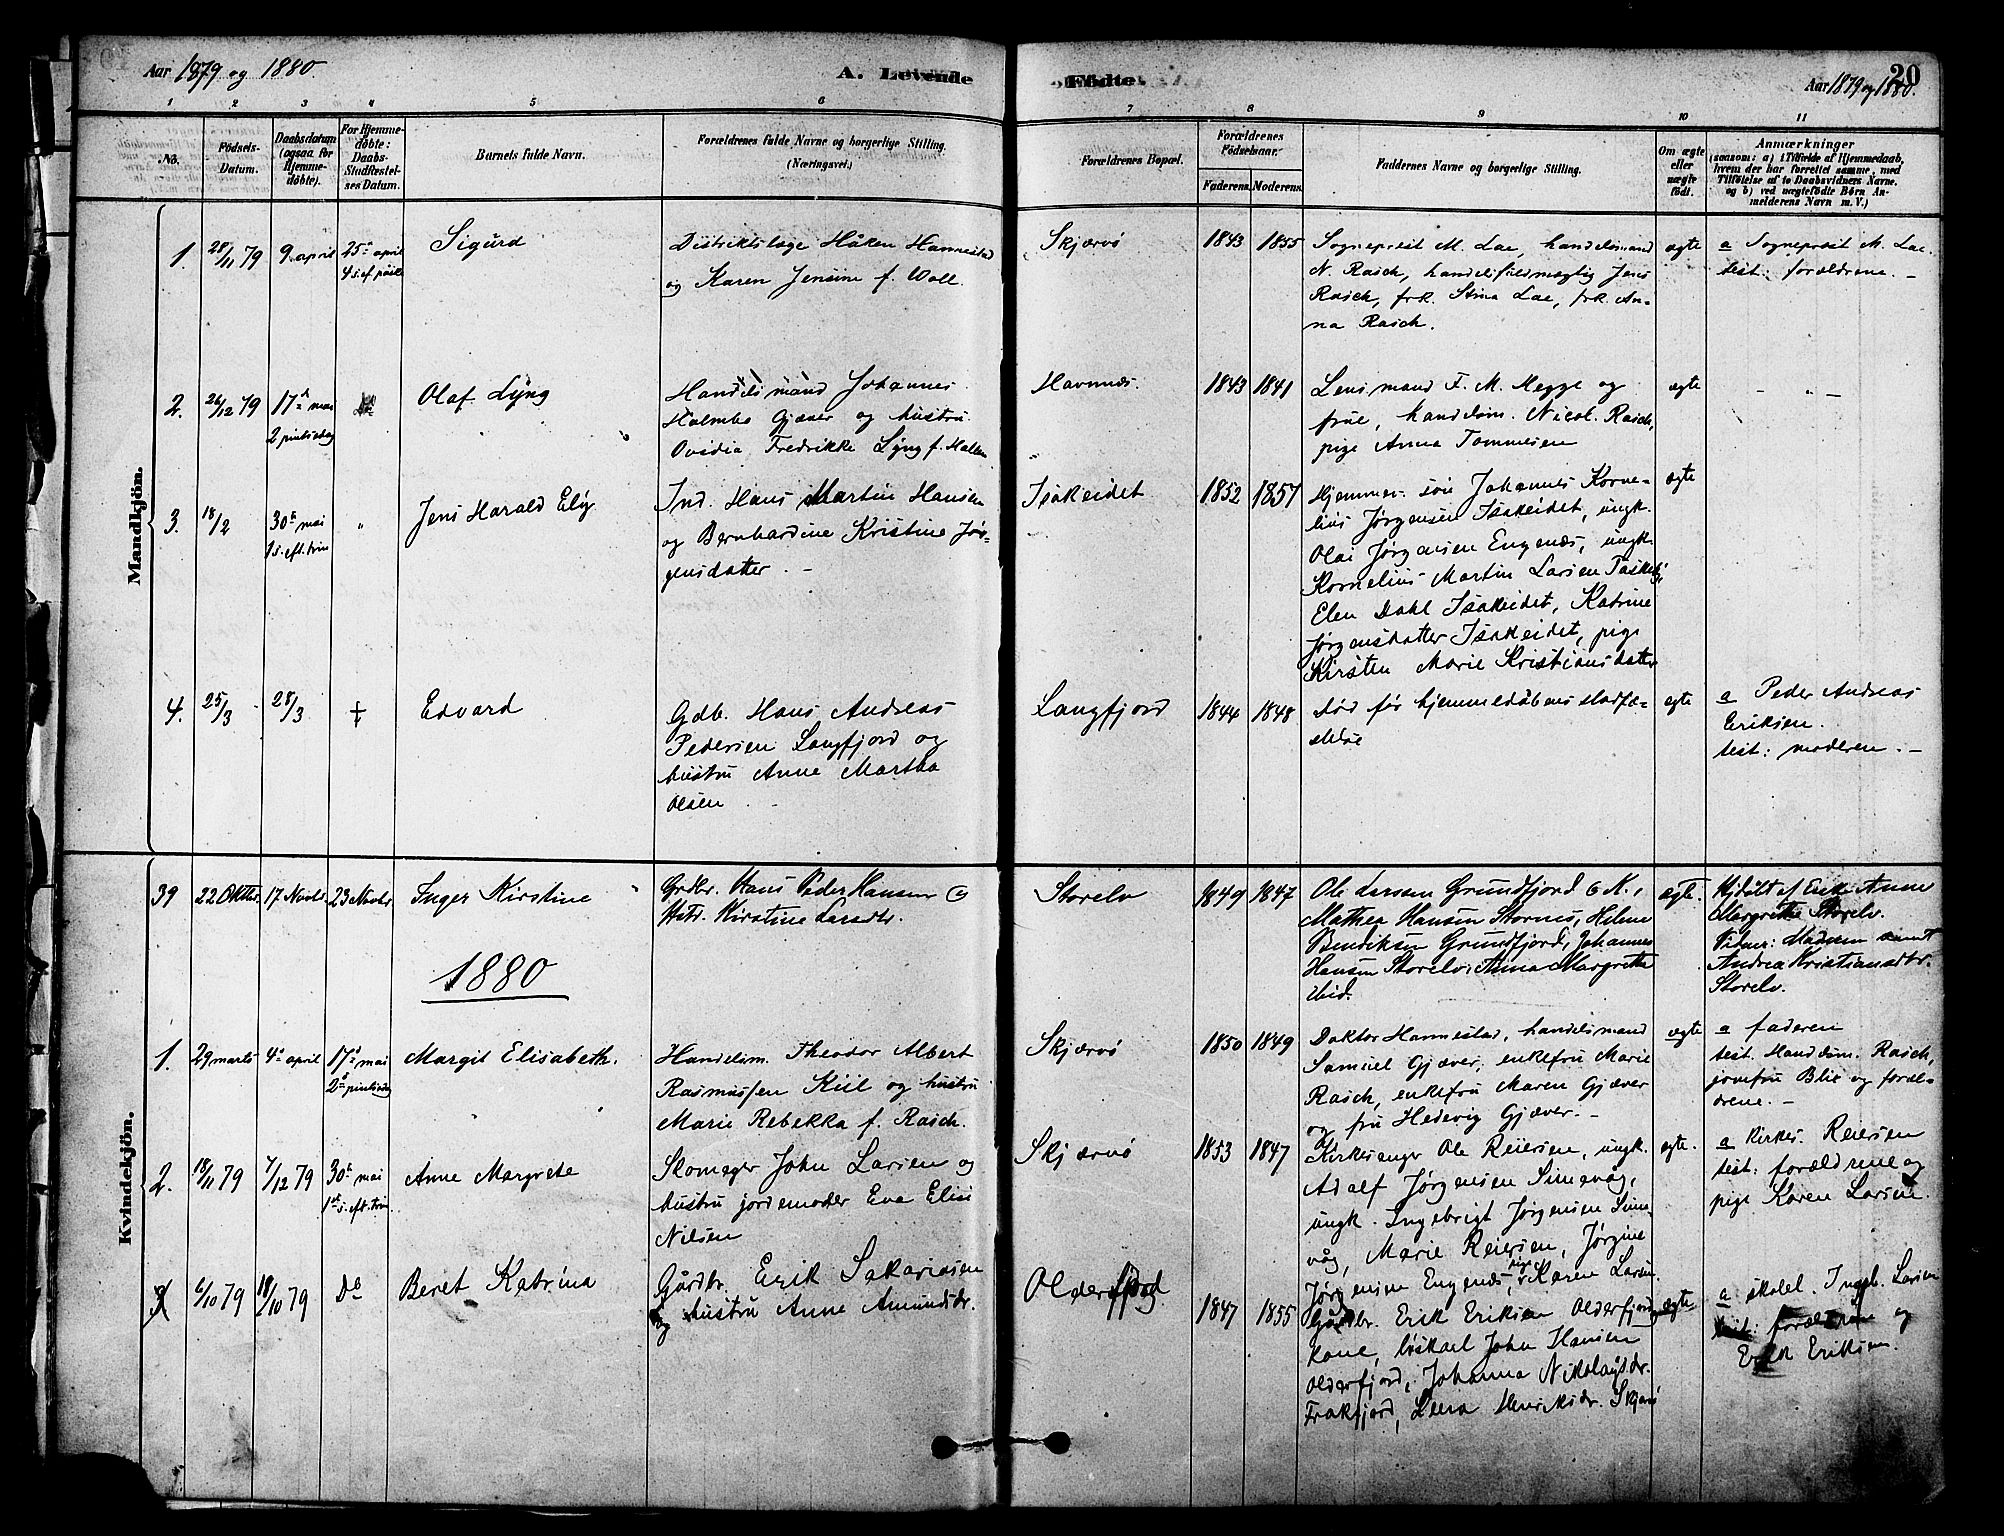 Aar 1879 og 1880.
A. Levende
Fødte.
20
Aar 1879 og 1880.
1 2 3 4 5 6 7 8 9 10 11
No.
Fødsels-
Datum.
Daabsdatum
(ogsaa for
Hjemme-
døbte).
For Hjemme-
døbte:
Daabs-
Stadfæstel-
ses Datum.
Barnets fulde Navn.
Forældrenes fulde Navne og borgerlige Stilling.
(Næringsvei.)
Forældrenes Bopæl.
Forældrenes
Fødselsaar.
Faderens. Moderens.
Faddernes Navne og borgerlige Stilling.
Om ægte
eller
uægte
født.
Anmærkninger
(saasom: a) i Tilfælde af Hjemmedaab,
hvem der har forrettet samme, med
Tilføielse af to Daabsvidners Navne,
og b) ved uægtefødte Børn An-
melderens Navn m. V.)
Mandkjön.
1.
28/11 79
9 april
25de april
4 s. ef. påske
Sigurd
Distriktslæge Håken Hannestad
og Karen Jensine f. Woll.
Skjærvö
1843
1855
Sogneprest M. Lae, handelsmand
N. Rasch, handelsfuldmægtig Jens
Rasch, frk. Stina Lae, frk. An-
na Rasch.
ægte
a Sogneprest M. Lae.
test: forældrene. -
2.
26/12 79
17de mai
2 pintsedag
Olaf Lyng
Handelsmand Johannes
Holmbo Gjæver og hustru
Ovidia Fredrikke Lyng f. Hallen
Havnnæs.
1843
1841
Lensmand F. M. Hegge og
frue, handelsm. Nicol. Rasch,
pige Anna Tommesen
ægte
- " -
3.
18/2
30te mai
1 s. eft. trin
"
Jens Harald Eliј
Ind. Hans Martin Hansen
og Bernhardine Kristine Jør-
gensdatter. -
Isakeidet
1852
1857
Hjemmev. søn Johannes Korne-
lius Jørgensen Isakeidet, ungk.
Olai Jørgensen Engenæs, ungk.
Kornelius Martin Larsen Taskeby,
Elen Dahl Isakeidet, Katrine
Jørgensdatter Isakeidet, pige
Kirsten Marie Kristiansdatter
ægte
4.
25/3
28/3
‡
Edvard
Gdb. Hans Andreas
Pedersen Langfjord og
hustru Anne Martha
Olsen
Langfjord
1844
1848
død før hjemmedåbens stadfæ-
stelse
ægte
a Peder Andreas
Eriksen.
test: moderen. -
Kvindekjön.
39
22 Oktbr.
17 Novbr.
23 Novbr
Inger Kirstine
Grdbr. Hans Peder Hansen &
Hstr. Kirstine Larsdtr.
Storelv
1849
1847
Ole Larssen Grundfjord & K.,
Mathea Hansen Stornes, Helene
Bendiksen Grundfjord, Johannes
Hansen Storelv, Anna Margrethe
ibid.
ægte.
Hjdøbt af Erik Anna
Margrethe Storelv.
Vidner: Moderen samt
Andrea Kristiansdtr.
Storelv.
1880
1.
29 marts
4de april
17de mai
2den pintsedag
Margit Elisabeth.
Handelsm. Theodor Albert
Rasmussen Kiil og hustru
Marie Rebekka f. Rasch.
Skjærvö
1850
1849
Doktor Hannestad, handelsmand
Samuel Gjæver, enkefru Marie
Rasch, enkefru Maren Gjæver
og fru Hedevig Gjæver. -
ægte
a faderen
test. Handelsm. Rasch,
jomfru Blix og foræl-
drene. -
2.
18/11 79
7/12 79
30te mai
1ste s. eft. trin.
Anne Margrete
Skomager John Larsen og
hustru jordemoder Eva Elisi
Nilsen
Skjærvö
1853
1847
Kirkesanger Ole Reiersen, ungk.
Adalf Jørgensen Simevåg,
ungk. Ingebrigt Jørgensen Sime-
våg, Marie Reiersen, Jørgine
Jørgensen Engenæs, pige Karen Larsen.
ægte.
a Kirkes. Reiersen
test: forældrene og
pige Karen Larsen.
3
6/10 79
18/10 79
Do
Beret Katrina
Gårdbr. Erik Sakariasen
og hustru Anne Amundsdr.
Olderfjord
1847
1855
Gårdbr. Erik Eriksen Olderfjord
kone, løskarl John Hansen
Olderfjord, Johanna Nikolaysdr.
Frakfjord, Lena Henriksdr. Skjærvö
ægte
a skolel. Ingeb. Larsen
test: forældrene og
Erik Eriksen.